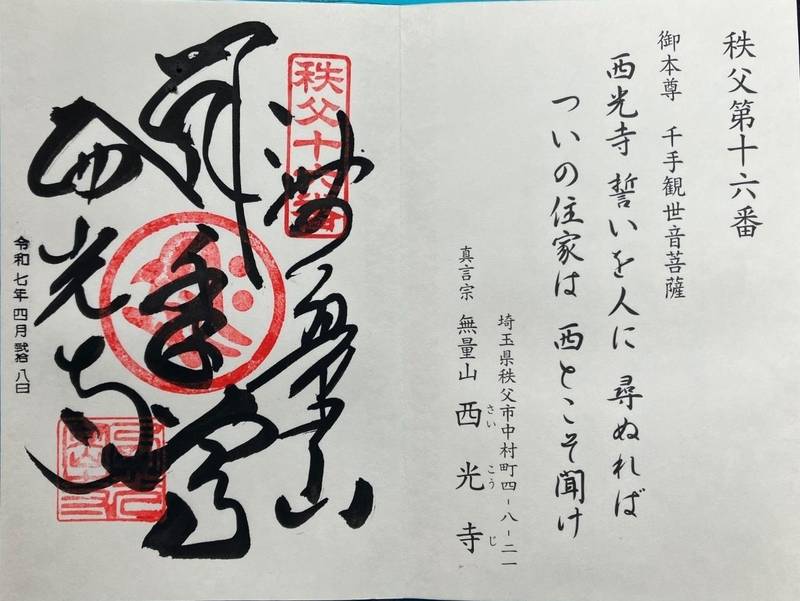 秩父第十六番
御本尊 千手観世音菩薩
西光寺 誓いを人に 尋ぬれば
ついの住家は 西とこそ聞け
埼玉県秩父市中村町四-八-二一
真言宗 無量山 西光寺
さい こう じ
秩父十六番
無量山
西光寺
令和七年四月弐拾八日